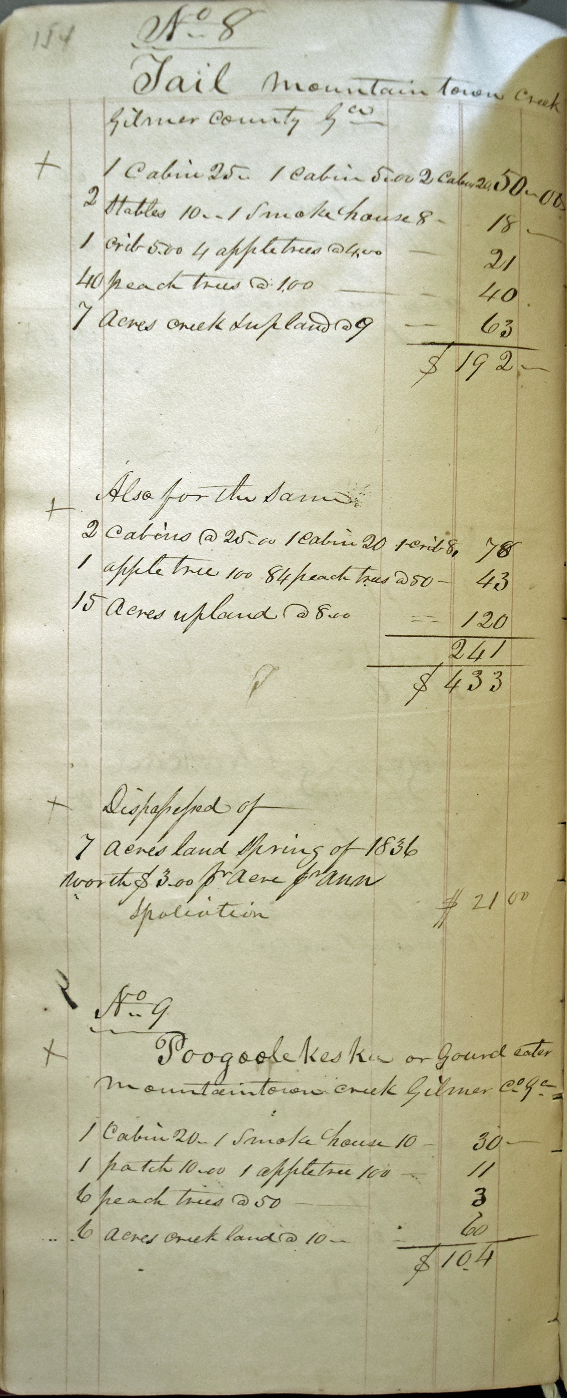 154
No 8
Tail mountain town creek
Gilmer County Ga
+ 1 Cabin 25.. 1 cabin 5.00 2 Cabin 20 50..00
2 Stables 10.. 1 Smoke house 8 - 18
1 crib 5.00 4 apple trees @ 4.00 — 21
40 peach trees @ 1.00 — 40
7 Acres creek & upland @ 9 — 63
$ 192
+ Also for the Same
2 Cabins @ 25.00 1 Cabin 20 1 crib 8, 78
1 apple tree 100 84 peach trees @ 50 - 43
15 Acres upland @ 8.00 120
241
$ 433
+ Dispossessed of
7 acres land Spring of 1836
worth $3.00 pr Acre pr ann
Spoliation $ 21 00
No 9
+ Poogoolekeskee or Gourd eater
Mountaintown creek Gilmer Co Ga
1 Cabin 20.. 1 Smoke house 10 - 30
1 patch 10.00 1 apple tree 100 — 11
6 peach trees @ 50 — 3
6 acres creek land @ 10.. 60
$ 104